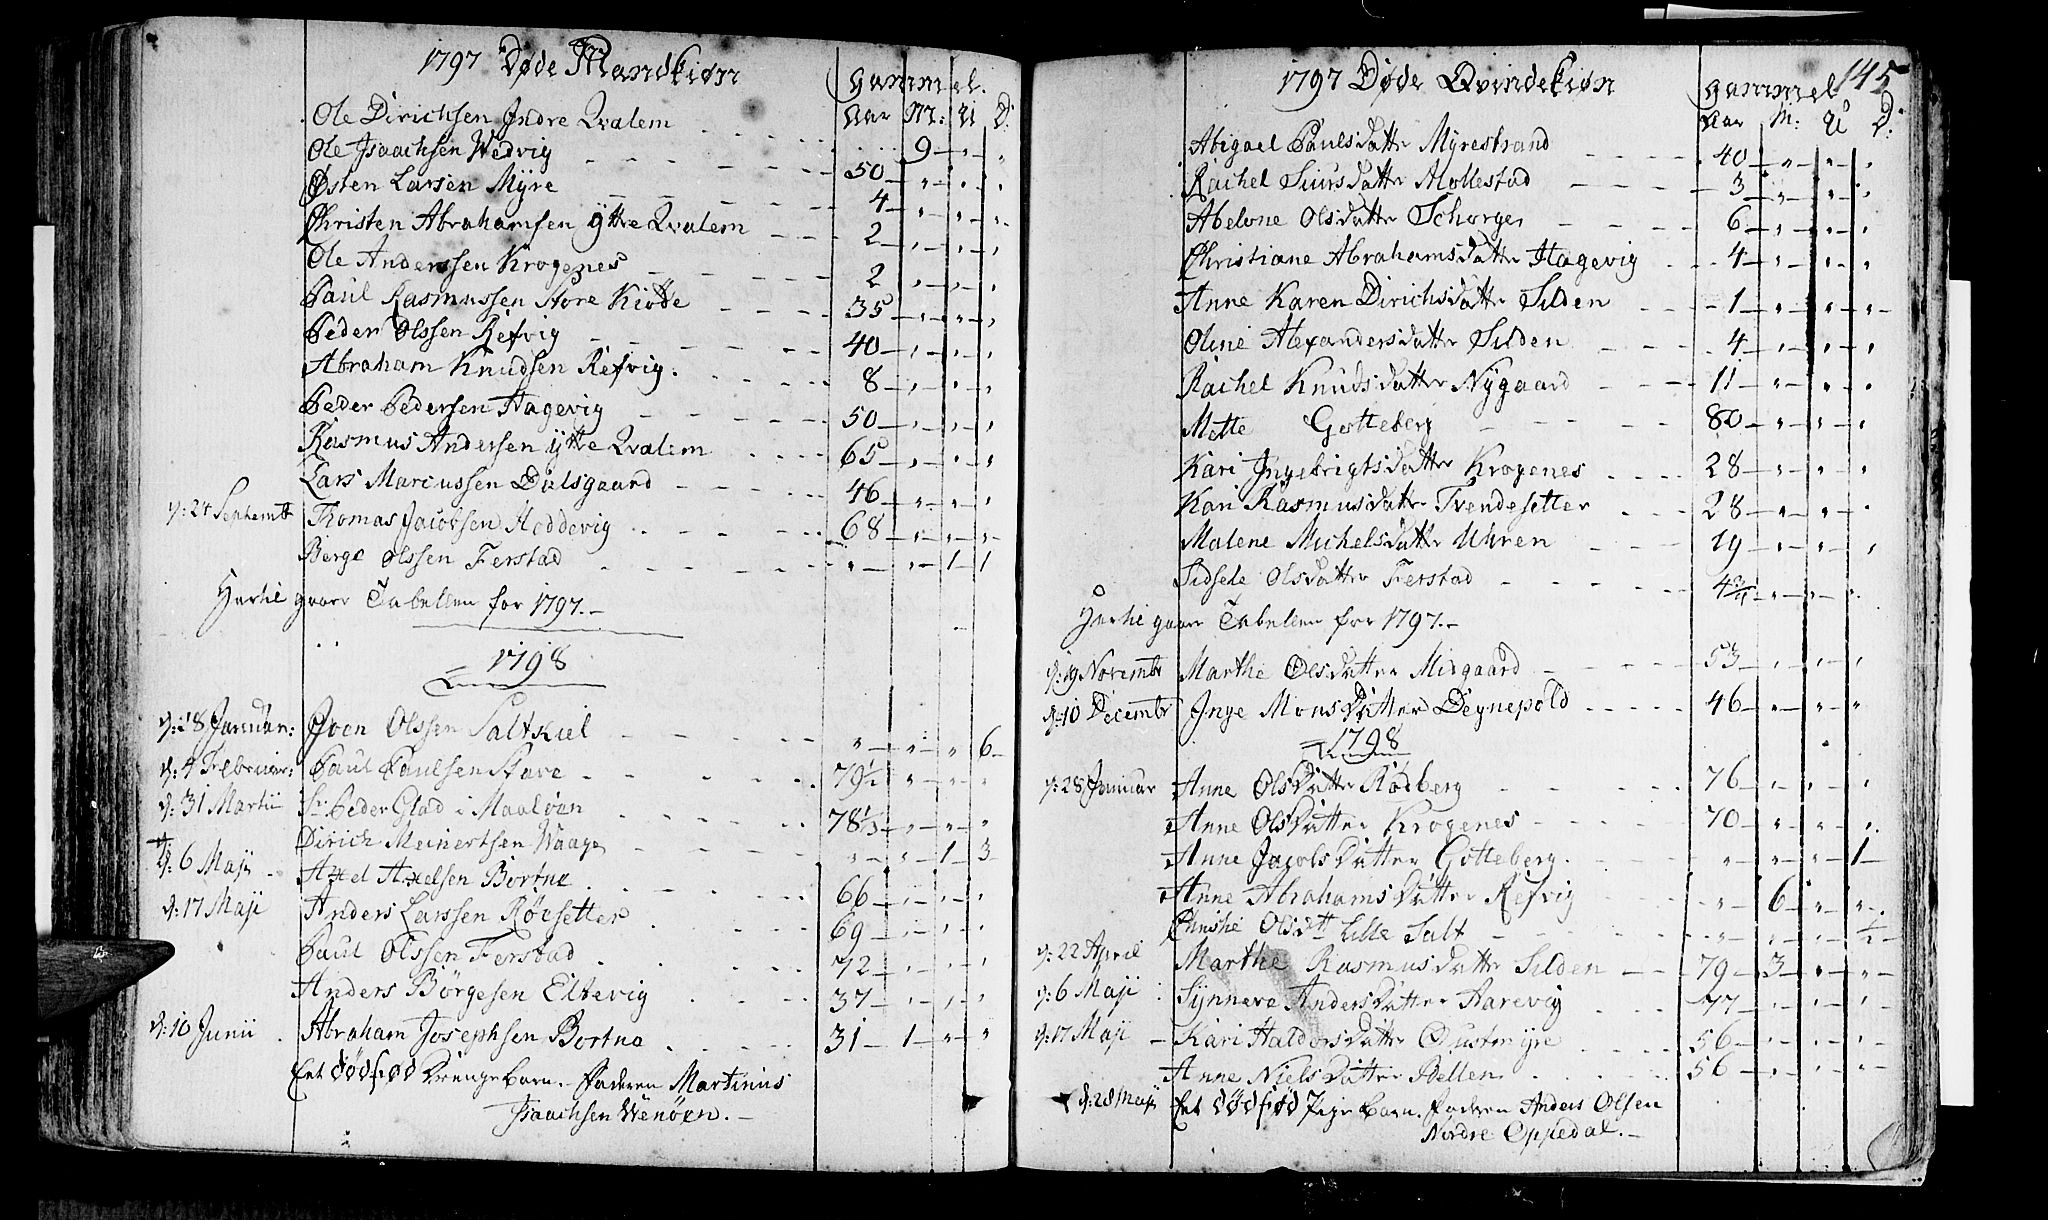 1797 Døde Mandkiøn
Gammel.
Aar M: U D:
Ole Dirichsen Indre Qvalem 9 " "
Ole Isaachsen Wedvig 50 " " "
Østen Larsen Myre 4 " " "
Christen Abrahamsen Ÿttre Qvalem 2 " " "
Ole Anderssen Krogenes 2 " " "
Paul Rasmussen Store Kiøde 35 " " "
Peder Olssen Refvig 40 " " "
Abraham Knudsen Refvig. 8 " " "
Peder Pedersen Hagevig 50 " " "
Rasmus Andersen ÿttre Qvalem 65 " " "
Lars Marcussen Dalsgaard 46 " " "
d: 24 Septembr Thomas Jacobsen Hoddevig 68 " " "
Børge Olssen Ferstad " " 1 1
Hertil gaaer Tabellen for 1797.
1798
d: 28 Januar: Joen Olssen Saltkiel " " " 6
d: 4 Februar: Paul Paulsen Stave 79½ " " "
d: 31 Martii Sr. Peder Glad i Maaløen 78⅓ " " "
Dirich Meinertsen Waage " " 1 3
d: 6 Maji Axel Axelsen Bortne 66 " " "
d: 17 Maji Anders Larssen Røcsetter 69 " " "
Paul Olssen Ferstad 72 " " "
Anders Børgesen Eltevig 37 " " "
d: 10 Junii Abraham Josephsen Bortne 31 1 " "
Eet dødfød Drengebarn. Faderen Martinus
Isaachsen Wenøen.
145
1797 Døde Qvindekiøn
Gammel
Aar M: U D:
Abigael Paulsdatter Myrestrand 40 " " "
Rachel Siursdatter Mollestad 3 " " "
Abelone Olsdatter Schorge 6 " " "
Christiane Abrahamsdatter Hagevig 4 " " "
Anne Karen Dirichsdatter Silden 1 " " "
Oline Alexandersdatter Silden 4 " " "
Rachel Knudsdatter Nygaard 11 " " "
Mette Gotteberg 80 " " "
Kari Ingebrigtsdatter Krogenes 28 " " "
Kari Rasmusdatter Trendesetter 28 " " "
Malene Michelsdatter Uhren 19 " " "
Sidsele Olsdatter Ferstad " " "
Hertil gaaer Tabellen for 1797.
d: 19 Novembr Marthe Olsdatter Midgaard 53 " " "
d: 10 Decembr Inge Monsdatter Degnepold 46 " " "
1798
d: 28 Januar Anne Olsdatter Rødberg 76 " " "
Anne Olsdatter Krogenes 70 " " "
Anne Jacobsdatter Gotteberg. " " " 1
Anne Abrahamsdatter Refvig " 6 " "
Christie Olsdttr Lille Salt " " " ½
d: 22 April Marthe Rasmusdatter Silden 79 3 " "
d: 6 Maji Synneve Andersdatter Aarevig 77 " " "
d: 17 Maji Kari Haldorsdatter Qustmyre 56 " " "
Anne Nielsdatter Pellen 56 " " "
d: 28 Maji Eet dødfød Pige barn. Faderen Anders Olsen
Nordre Oppedal.